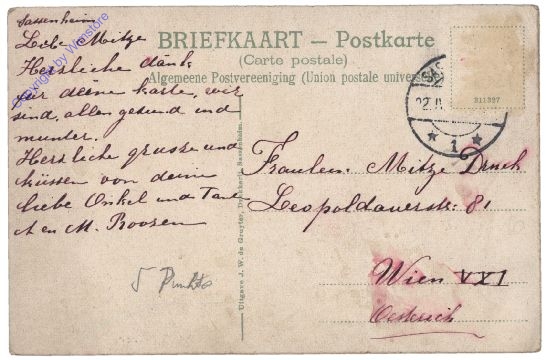 Sassenheim
Liebe Mitze
Herzliche dank
für deene karte, wir
sind, alles gesund und
munter.
Herzliche grusse und
küssen von deine
liebe Onkel und Tante
A en M. Roosen
5 Punkte
Copyright by Wienstore
BRIEFKAART – Postkarte
(Carte postale)
Algemeene Postvereeniging (Union postale universe
Uitgave J. W. de Gruyter, Drukkerij, Sassenheim.
22.
1
311397
Fraulein Mitze
Leopoldauerstr. 81
Wien XXI
Oesterreich